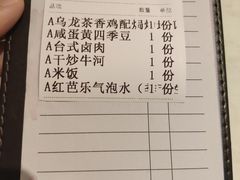 品项 数量 单位
A乌龙茶香鸡配
A咸蛋黄四季豆 1 份
A台式卤肉 1 份
A干炒牛河 1 份
A米饭 1 份
A红芭乐气泡水（